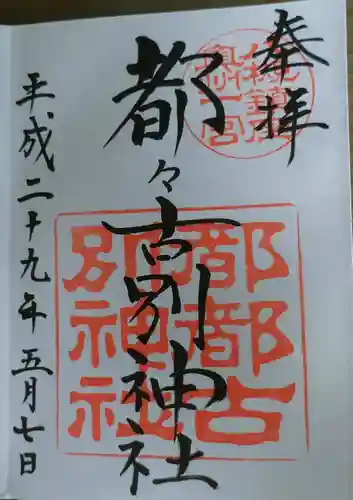 奉拝
都々古別神社
平成二十九年五月七日
奥州一宮
都都古
別神社